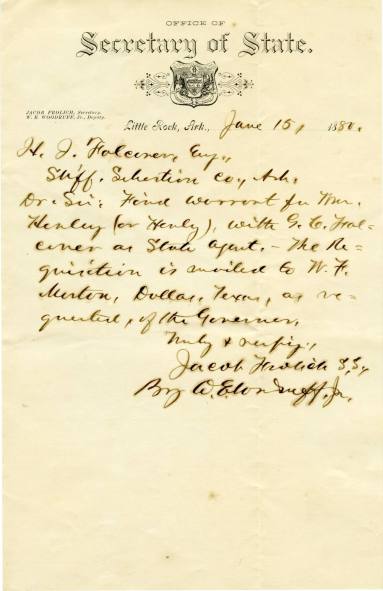 OFFICE OF
Secretary of State.
JACOB FROLICH, Secretary.
W. E. WOODRUFF, Jr., Deputy.
Little Rock, Ark., June 15, 1880.
H. J. Falconer, Esq.,
Shff. Sebastian Co., Ark.
Dr. Sir: Find warrant for Wm.
Henley (or Henly), with G. C. Fal-
coner as State Agent. - The Re-
quisition is mailed to W. F.
Morton, Dallas, Texas, as re-
quested, of the Governor.
Truly & respy.,
Jacob Frolich S.S.,
By W. E. Woodruff, Jr.